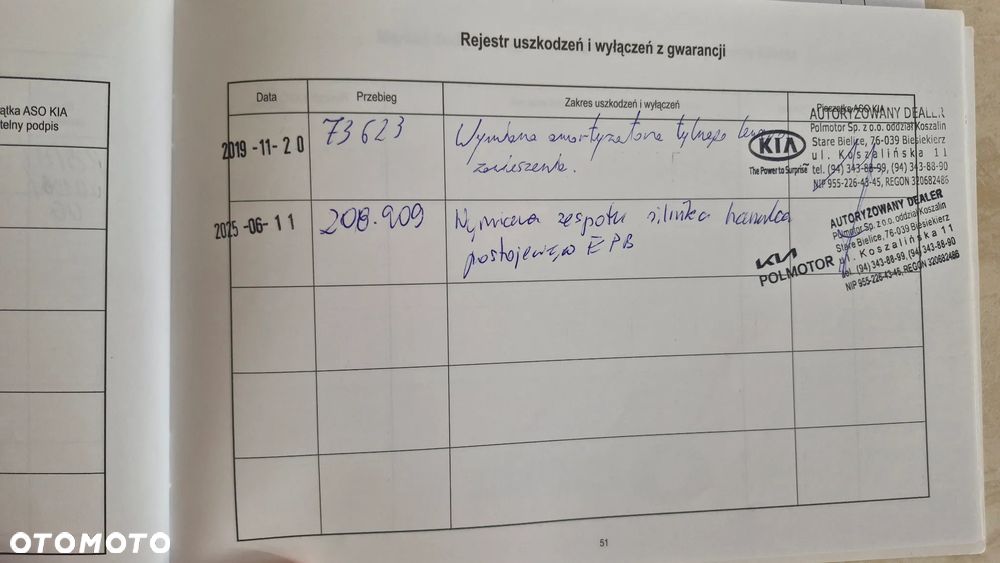 Rejestr uszkodzeń i wyłączeń z gwarancji
ątka ASO KIA
telny podpis
Data
Przebieg
Zakres uszkodzeń i wyłączeń
Pieczątka ASO KIA
2019-11-20
73623
Wymiana amortyzatora tylnego lewego
zawieszenia.
KIA
The Power to Surprise
AUTORYZOWANY DEALER
Polmotor Sp. z o.o. oddział Koszalin
Stare Bielice, 76-039 Biesiekierz
ul. Koszalińska 11
tel. (94) 343-88-99, (94) 343-88-90
NIP 955-226-43-45, REGON 320682486
2025-06-11
208.909
Wymiana zespołu silnika hamulca
postojowego EPB
KIA
POLMOTOR
AUTORYZOWANY DEALER
Polmotor Sp. z o.o. oddział Koszalin
Stare Bielice, 76-039 Biesiekierz
ul. Koszalińska 11
tel. (94) 343-88-99, (94) 343-88-90
NIP 955-226-43-45, REGON 320682486
51
OTOMOTO